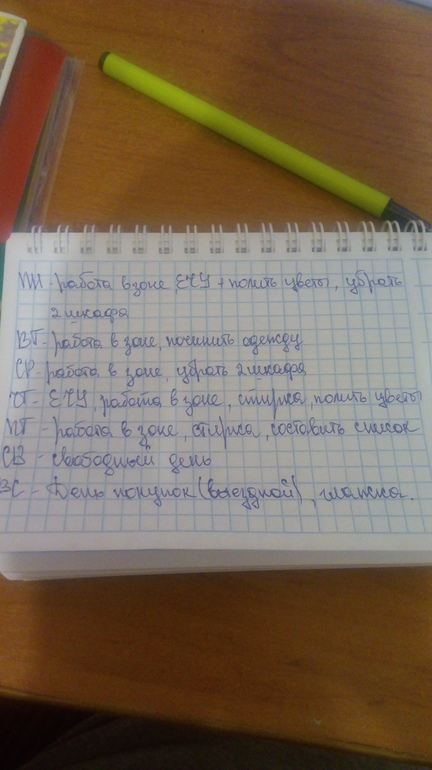 ПН - работа в зоне, ЕЧУ + полить цветы, убрать
2 шкафа
ВТ - работа в зоне, починить одежду
СР - работа в зоне, убрать 2 шкафа
ЧТ - ЕЧУ, работа в зоне, стирка, полить цветы
ПТ - работа в зоне, стирка, составить список
СБ - свободный день
ВС - День покупок (выездной), глажка.